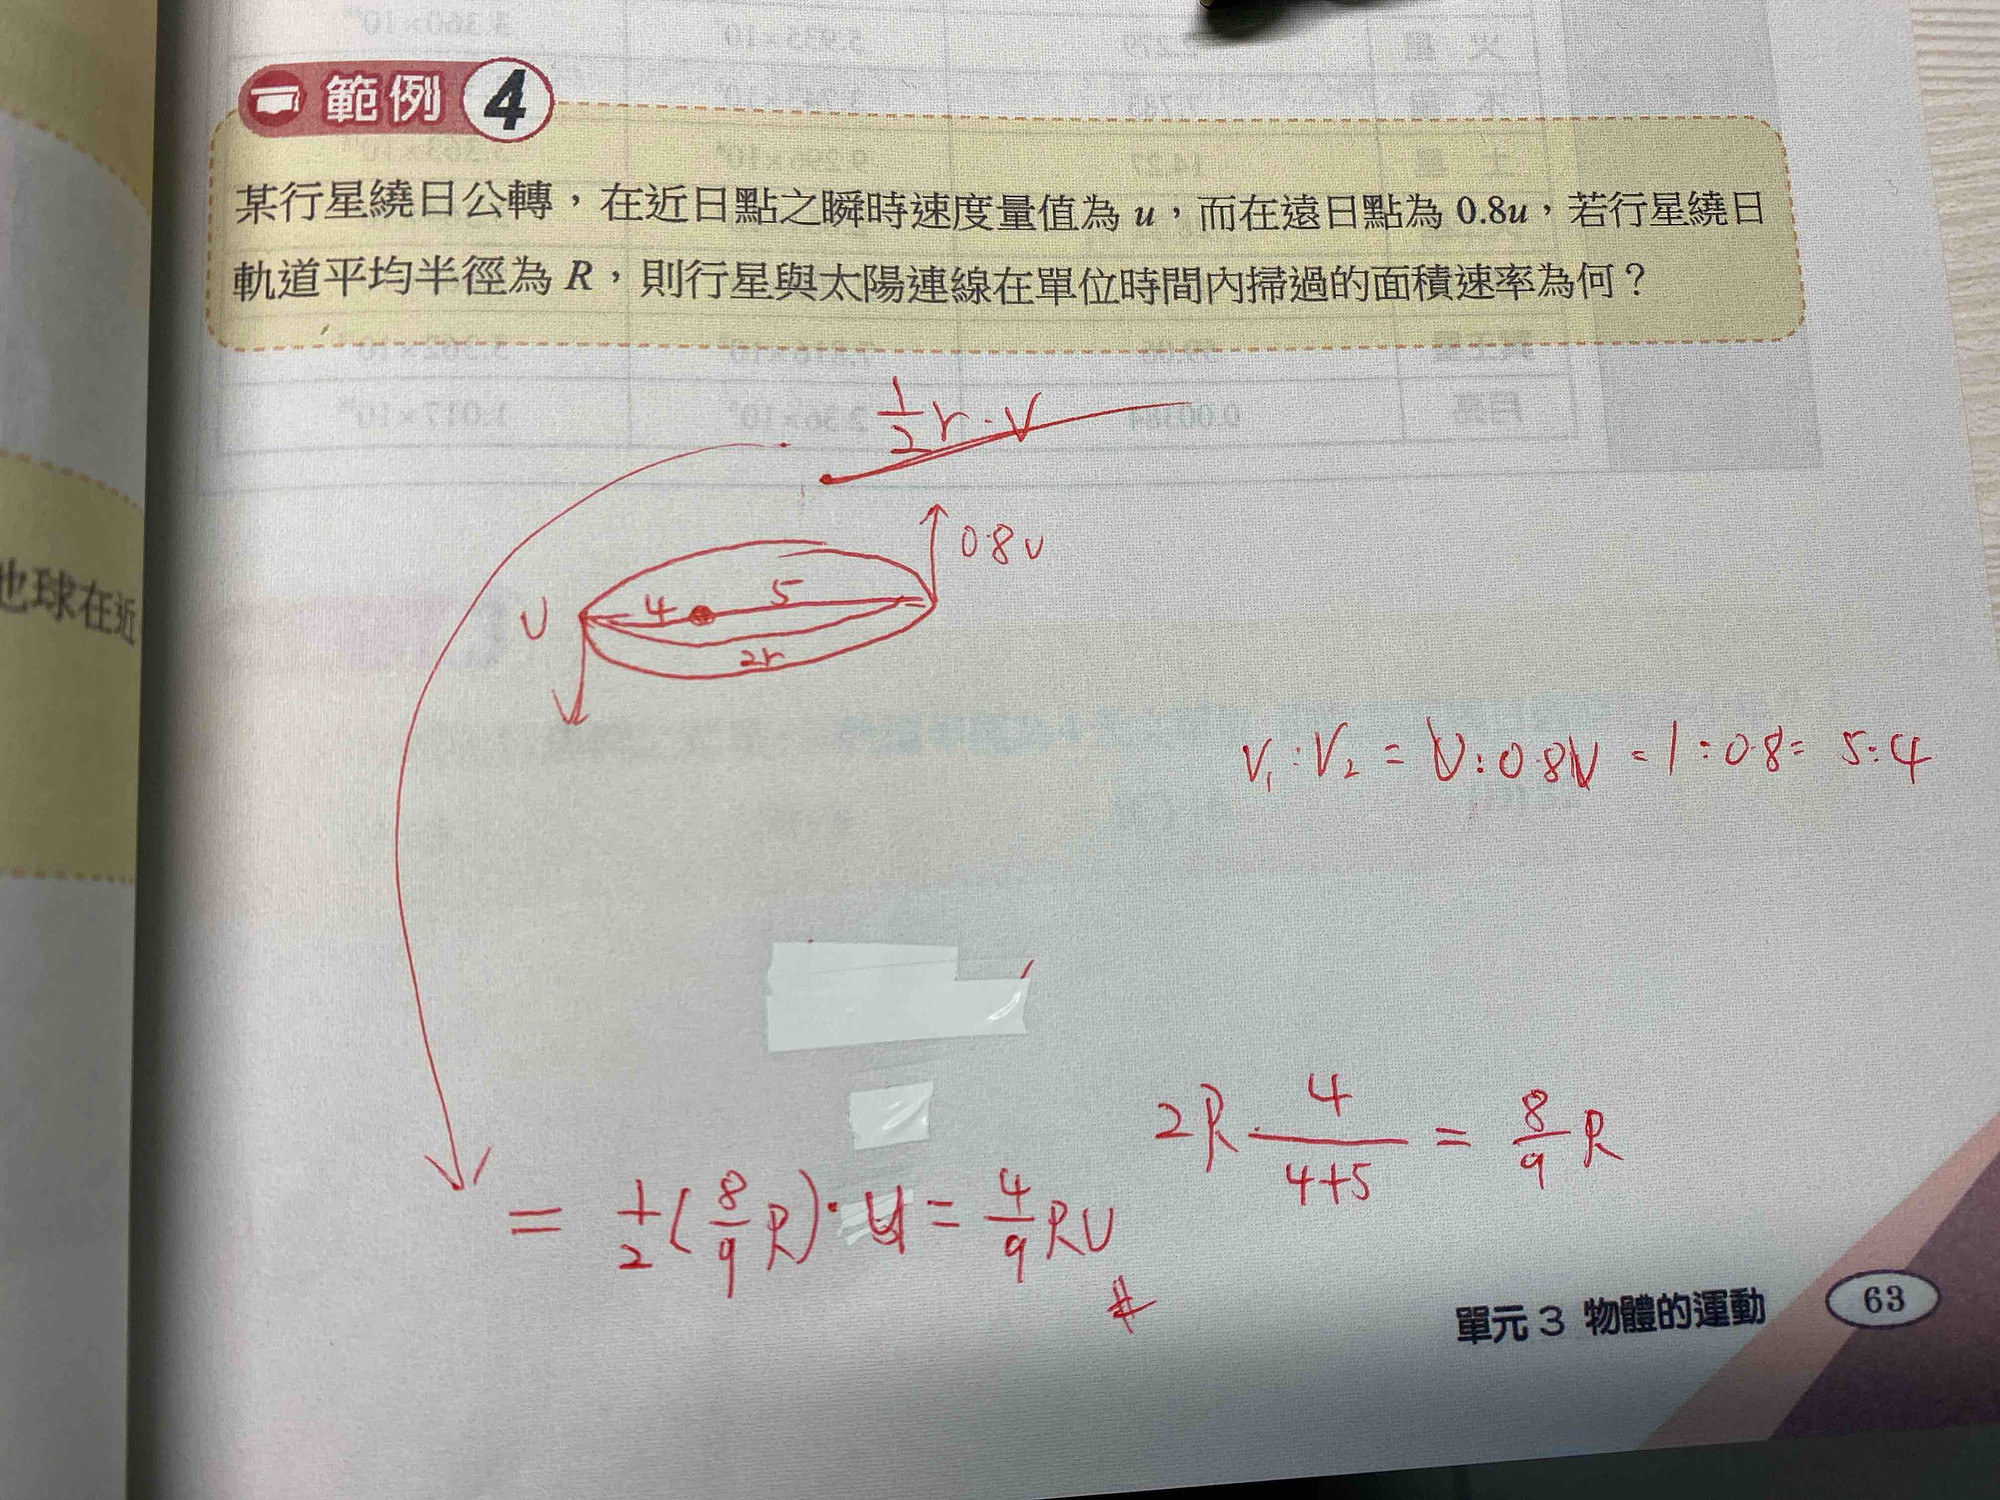 範例 4
某行星繞日公轉，在近日點之瞬時速度量值為 u，而在遠日點為 0.8u，若行星繞日
軌道平均半徑為 R，則行星與太陽連線在單位時間內掃過的面積速率為何？
1/2 r · V
0.8 U
U 4 5
2r
V₁ : V₂ = U : 0.8U = 1 : 0.8 = 5 : 4
2R · 4/(4+5) = 8/9 R
= 1/2 (8/9 R) · u = 4/9 RU #
也球在近
單元 3 物體的運動 63